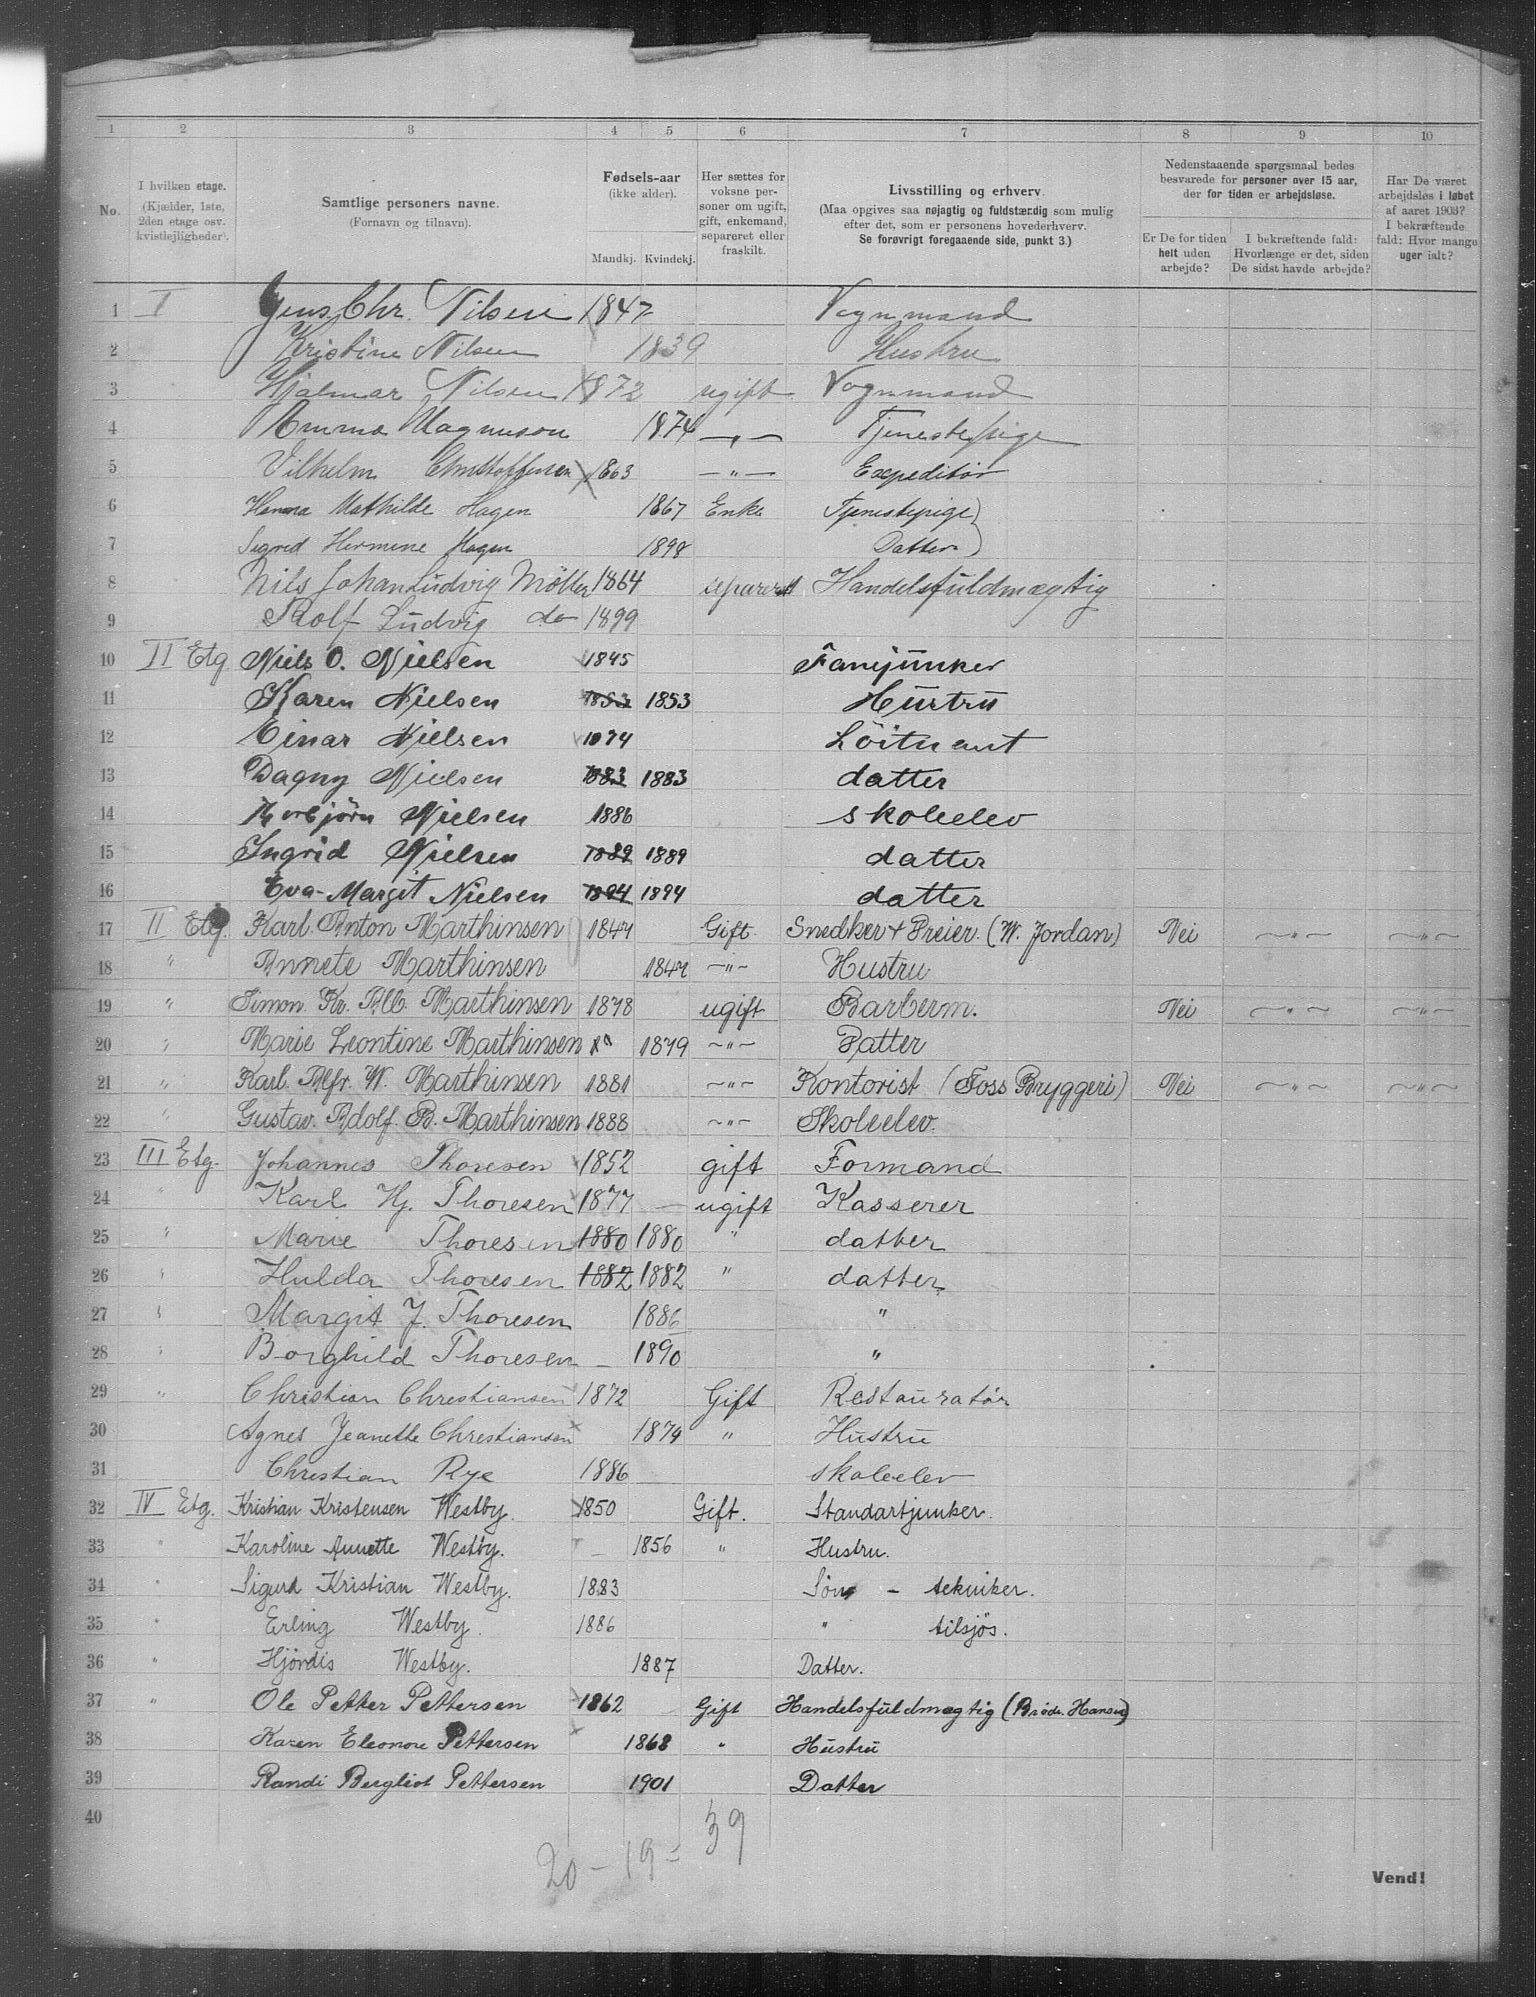 1 2 3 4 5 6 7 8 9 10
No.
I hvilken etage.
(Kjælder, 1ste,
2den etage osv.
kvistlejligheder).
Samtlige personers navne.
(Fornavn og tilnavn).
Fødsels-aar
(ikke alder).
Mandkj. Kvindekj.
Her sættes for
voksne per-
soner om ugift,
gift, enkemand,
separeret eller
fraskilt.
Livsstilling og erhverv.
(Maa opgives saa nøjagtig og fuldstændig som mulig
efter det, som er personens hovederhverv.
Se forøvrigt foregaaende side, punkt 3.)
Nedenstaaende spørgsmaal bedes
besvarede for personer over 15 aar,
der for tiden er arbejdsløse.
Er De for tiden
helt uden
arbejde?
I bekræftende fald:
Hvorlænge er det, siden
De sidst havde arbejde?
Har De været
arbejdsløs i løbet
af aaret 1903?
I bekræftende
fald: Hvor mange
uger ialt?
1 I Jens Chr. Nilsen 1847 Vognmand
2 Kristine Nilsen 1839 Hustru
3 Hjalmar Nilsen 1872 ugift Vognmand
4 Emma Magnuson 1874 —„— Tjenestepige
5 Vilhelm Christoffersen 1863 —„— Expeditör
6 Hanna Mathilde Hagen 1867 Enke Tjenestepige)
7 Sigrid Hermine Hagen 1898 Datter)
8 Nils Johan Ludvig Möller 1864 separert Handelsfuldmægtig
9 Rolf Ludvig do 1899
10 II Etg Niels O. Nielsen 1845 Fanejunker
11 Karen Nielsen 1853 1853 Hustru
12 Einar Nielsen 1874 Löitnant
13 Dagny Nielsen 1883 1883 datter
14 Thorbjörn Nielsen 1886 skoleelev
15 Ingrid Nielsen 1889 1889 datter
16 Eva-Margit Nielsen 1894 1894 datter
17 II Etg. Karl Anton Marthinsen 1847 Gift. Snedker + Dreier. (W. Jordan) Nei —„— —„—
18 „ Annete Marthinsen 1847 —„— Hustru
19 „ Simon Kr. Alb. Marthinsen 1878 ugift Barberm. Nei —„— —„—
20 „ Marie Leontine Marthinsen 1879 —„— Datter
21 „ Karl Alfr. W. Marthinsen 1881 —„— Kontorist (Foss Bryggeri) Nei —„— —„—
22 „ Gustav Adolf. B. Marthinsen 1888 —„— Skoleelev.
23 III Etg. Johannes Thoresen 1852 gift Formand
24 „ Karl Hj. Thoresen 1877 — ugift Kasserer
25 „ Marie Thoresen 1880 1880 „ datter
26 „ Hulda Thoresen 1882 1882 „ datter
27 „ Margit J. Thoresen 1886 „
28 „ Borghild Thoresen — 1890 „
29 „ Christian Christiansen 1872 Gift Restauratör
30 Agnes Jeanette Christiansen 1874 „ Hustru
31 Christian Rye 1886 skoleelev
32 IV Etg. Kristian Kristensen Westby. 1850 Gift. Standartjunker.
33 „ Karoline Annette Westby. — 1856 „ Hustru.
34 „ Sigurd Kristian Westby. 1883 Sön – tekniker.
35 „ Erling Westby. 1886 „ tilsjös.
36 „ Hjördis Westby. 1887 Datter.
37 „ Ole Petter Pettersen 1862 Gift Handelsfuldmægtig (Brödr. Hansen)
38 Karen Eleonore Pettersen 1868 „ Hustru
39 Randi Bergliot Pettersen 1901 Datter
40
20 – 19 = 39
Vend!